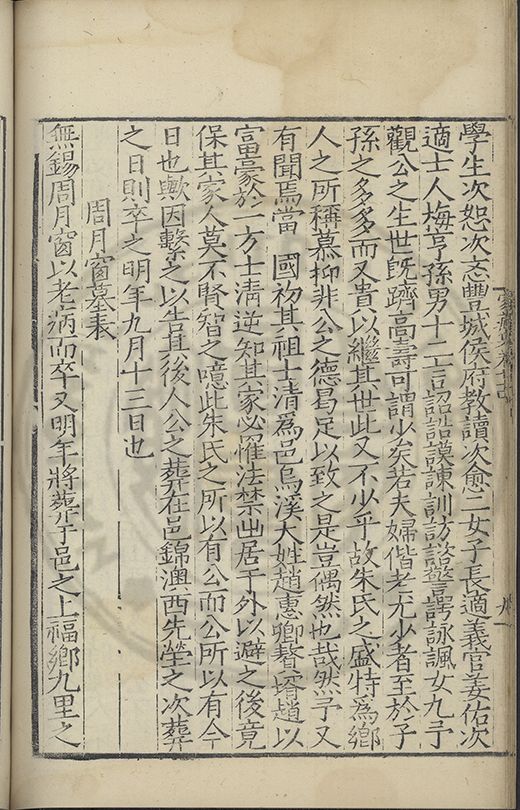 學生次恕次忞豐城侯府教讀次愈二女子長適義官姜佑次
適士人梅亨孫男十二言詔誥謨諫訓訪諮謩諤詠諷女九予
觀公之生世既躋高壽可謂少矣若夫婦偕老尤少者至於子
孫之多多而又貴以繼其世此又不少乎故朱氏之盛特爲鄉
人之所稱慕抑非公之德曷足以致之是豈偶然也哉然予又
有聞焉當 國初其祖士清爲邑烏溪大姓趙惠卿贅壻趙以
富豪於一方士清逆知其家必罹法禁出居于外以避之後竟
保其家人莫不賢智之噫此朱氏之所以有公而公所以有今
日也歟因繫之以告其後人公之葬在邑錦澳西先塋之次葬
之日則卒之明年九月十三日也
周月窗墓表
無錫周月窗以老病而卒又明年將葬于邑之上福鄉九里之